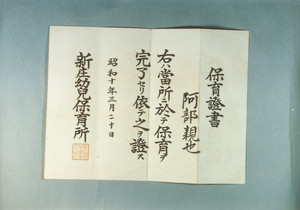 保育證書
阿部親也
右ハ當所ニ於テ保育ヲ
完了セリ依テ之ヲ證ス
昭和十年三月二十日
新庄幼兒保育所